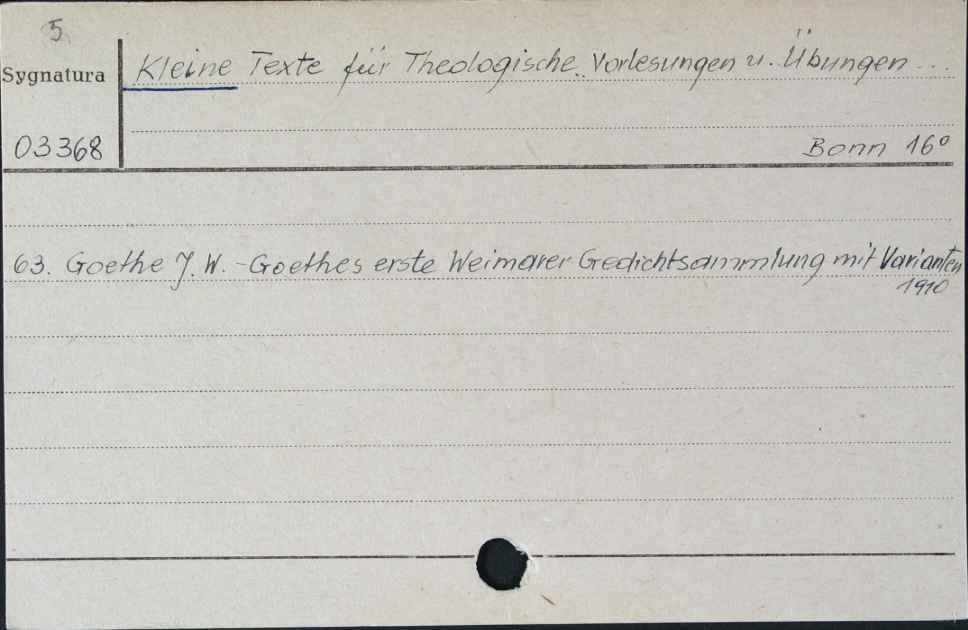 5
Sygnatura
Kleine Texte für Theologische Vorlesungen u. Übungen...
03368
Bonn 16°
63. Goethe J. W. - Goethes erste Weimarer Gedichtsammlung mit Varianten
1910